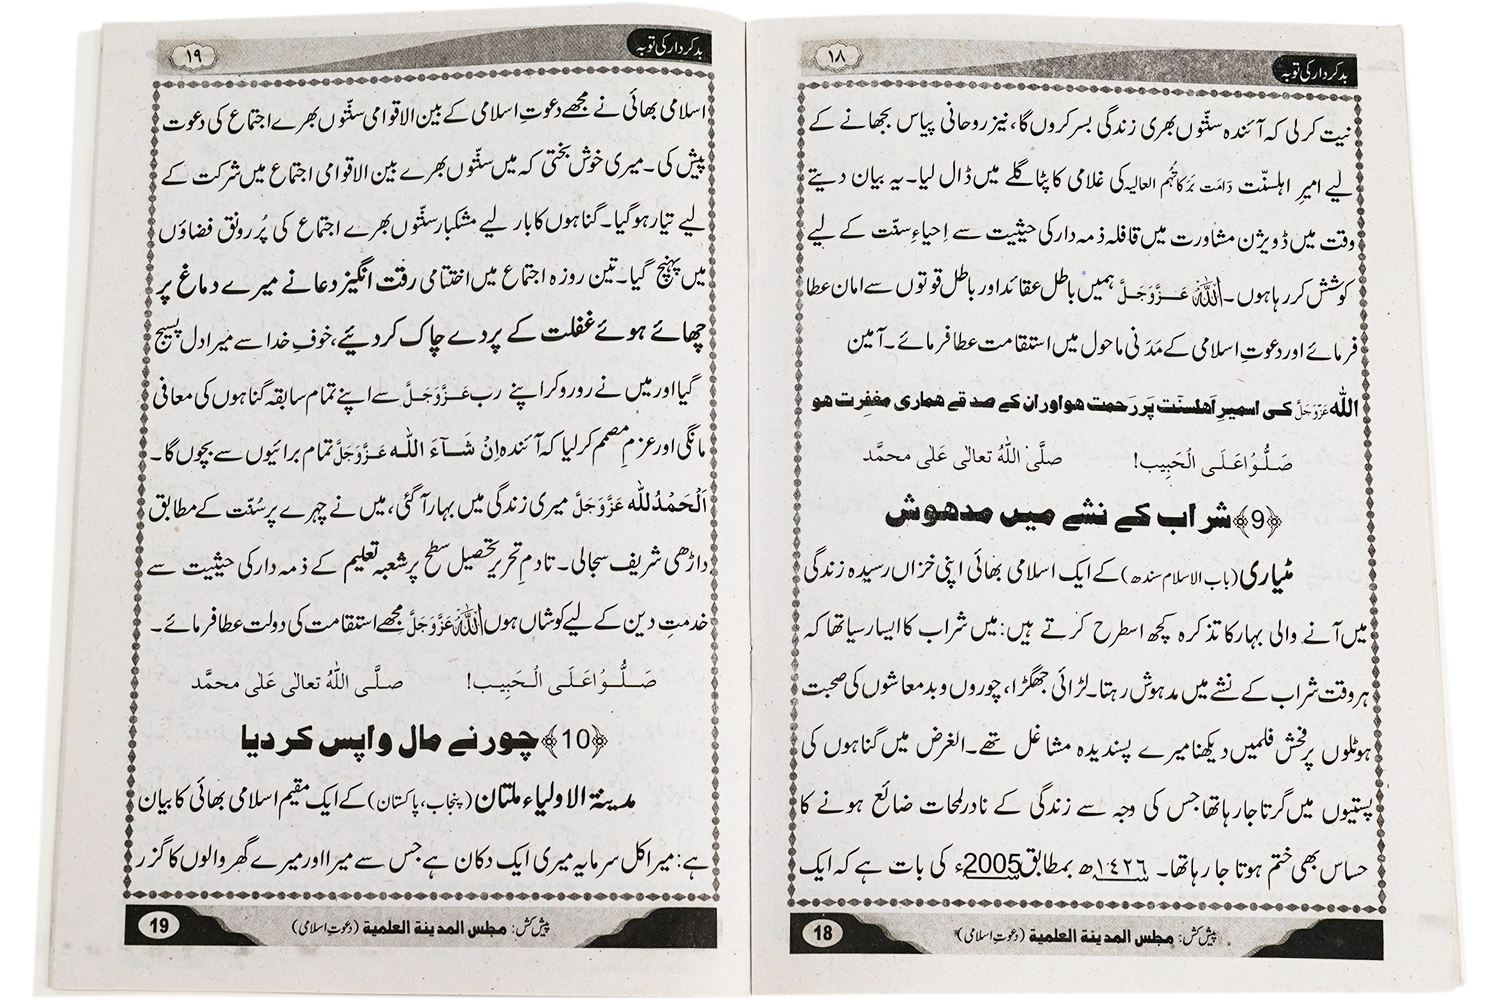 بدکردار کی توبہ
۱۸
نیت کر لی کہ آئندہ سنّتوں بھری زندگی بسر کروں گا، نیز روحانی پیاس بجھانے کے
لیے امیرِ اہلسنّت دَامَت بَرَکاتُہُم العالیہ کی غلامی کا پٹا گلے میں ڈال لیا۔ یہ بیان دیتے
وقت میں ڈویژن مشاورت میں قافلہ ذمہ دار کی حیثیت سے اِحیاءِ سنّت کے لیے
کوشش کر رہا ہوں۔ اللہ عَزَّوَجَلَّ ہمیں باطل عقائد اور باطل قوتوں سے امان عطا
فرمائے اور دعوتِ اسلامی کے مَدَنی ماحول میں استقامت عطا فرمائے۔ آمین
اللہ عَزَّوَجَلَّ کی امیرِ اَهلسنّت پَر رَحمت هو اور ان کے صدقے هماری مغفرت هو
صَلُّوْا عَلَی الْحَبِیب! صلَّی اللہُ تعالٰی عَلٰی محمَّد
﴿9﴾ شراب کے نشے میں مدھوش
مٹیاری (باب الاسلام سندھ) کے ایک اسلامی بھائی اپنی خزاں رسیدہ زندگی
میں آنے والی بہار کا تذکرہ کچھ اسطرح کرتے ہیں: میں شراب کا ایسا رسیا تھا کہ
ہر وقت شراب کے نشے میں مدہوش رہتا۔ لڑائی جھگڑا، چوروں و بدمعاشوں کی صحبت
ہوٹلوں پر فحش فلمیں دیکھنا میرے پسندیدہ مشاغل تھے۔ الغرض میں گناہوں کی
پستیوں میں گرتا جا رہا تھا جس کی وجہ سے زندگی کے نادر لمحات ضائع ہونے کا
حساس بھی ختم ہوتا جا رہا تھا۔ ۱۴۲۶ھ بمطابق 2005ء کی بات ہے کہ ایک
پیش کش: مجلس المدینة العلمیة (دعوتِ اسلامی)
18
بدکردار کی توبہ
۱۹
اسلامی بھائی نے مجھے دعوتِ اسلامی کے بین الاقوامی سنّتوں بھرے اجتماع کی دعوت
پیش کی۔ میری خوش بختی کہ میں سنّتوں بھرے بین الاقوامی اجتماع میں شرکت کے
لیے تیار ہو گیا۔ گناہوں کا بار لیے مشکبار سنّتوں بھرے اجتماع کی پُر رونق فضاؤں
میں پہنچ گیا۔ تین روزہ اجتماع میں اختتامی رقت انگیز دعا نے میرے دماغ پر
چھائے ہوئے غفلت کے پردے چاک کر دیئے، خوفِ خدا سے میرا دل پسیج
گیا اور میں نے رو رو کر اپنے رب عَزَّوَجَلَّ سے اپنے تمام سابقہ گناہوں کی معافی
مانگی اور عزمِ مصمم کر لیا کہ آئندہ اِنْ شَآءَ اللہ عَزَّوَجَلَّ تمام برائیوں سے بچوں گا۔
اَلْحَمْدُلِلّٰہ عَزَّوَجَلَّ میری زندگی میں بہار آ گئی، میں نے چہرے پر سُنّت کے مطابق
داڑھی شریف سجا لی۔ تادمِ تحریر تحصیل سطح پر شعبہ تعلیم کے ذمہ دار کی حیثیت سے
خدمتِ دین کے لیے کوشاں ہوں اللہ عَزَّوَجَلَّ مجھے استقامت کی دولت عطا فرمائے۔
صَلُّوْا عَلَی الْحَبِیب! صلَّی اللہُ تعالٰی عَلٰی محمَّد
﴿10﴾ چور نے مال واپس کر دیا
مدینۃ الاولیاء ملتان (پنجاب، پاکستان) کے ایک مقیم اسلامی بھائی کا بیان
ہے: میرا کل سرمایہ میری ایک دکان ہے جس سے میرا اور میرے گھر والوں کا گزر
پیش کش: مجلس المدینة العلمیة (دعوتِ اسلامی)
19